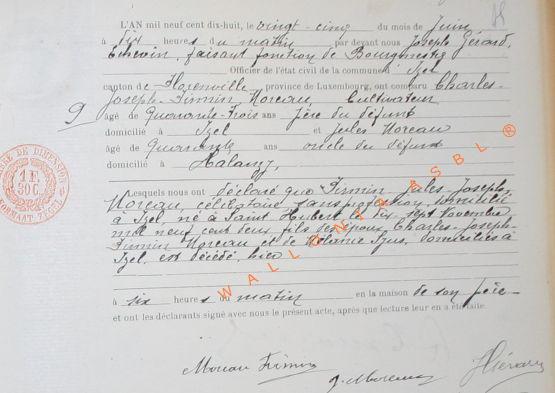 L'AN mil neuf cent dix-huit, le vingt-cinq du mois de Juin
à dix heures du matin par devant nous Joseph Gérard,
Echevin, faisant fonction de Bourgmestre
Officier de l'état civil de la commune d' Izel
canton de Florenville, province de Luxembourg, ont comparu Charles-
Joseph-Firmin Moreau, Cultivateur
9
âgé de Quarante-trois ans père du défunt
domicilié à Izel et Jules Moreau
âgé de Quarante ans oncle du défunt
domicilié à Halanzy,
Lesquels nous ont déclaré que Firmin Jules Joseph
Moreau, célibataire sans profession, domicilié
à Izel, né à Saint Hubert le dix sept Novembre
mil neuf cent deux fils des époux Charles-Joseph-
Firmin Moreau et de Mélanie domiciliés à
Izel, est décédé hier
à six heures du matin en la maison de son père
et ont les déclarants signé avec nous le présent acte, après que lecture leur en a été faite.
Moreau Firmin
J. Moreau
JGérard
WALLONIE ASBL ®
1 F.
30 C.